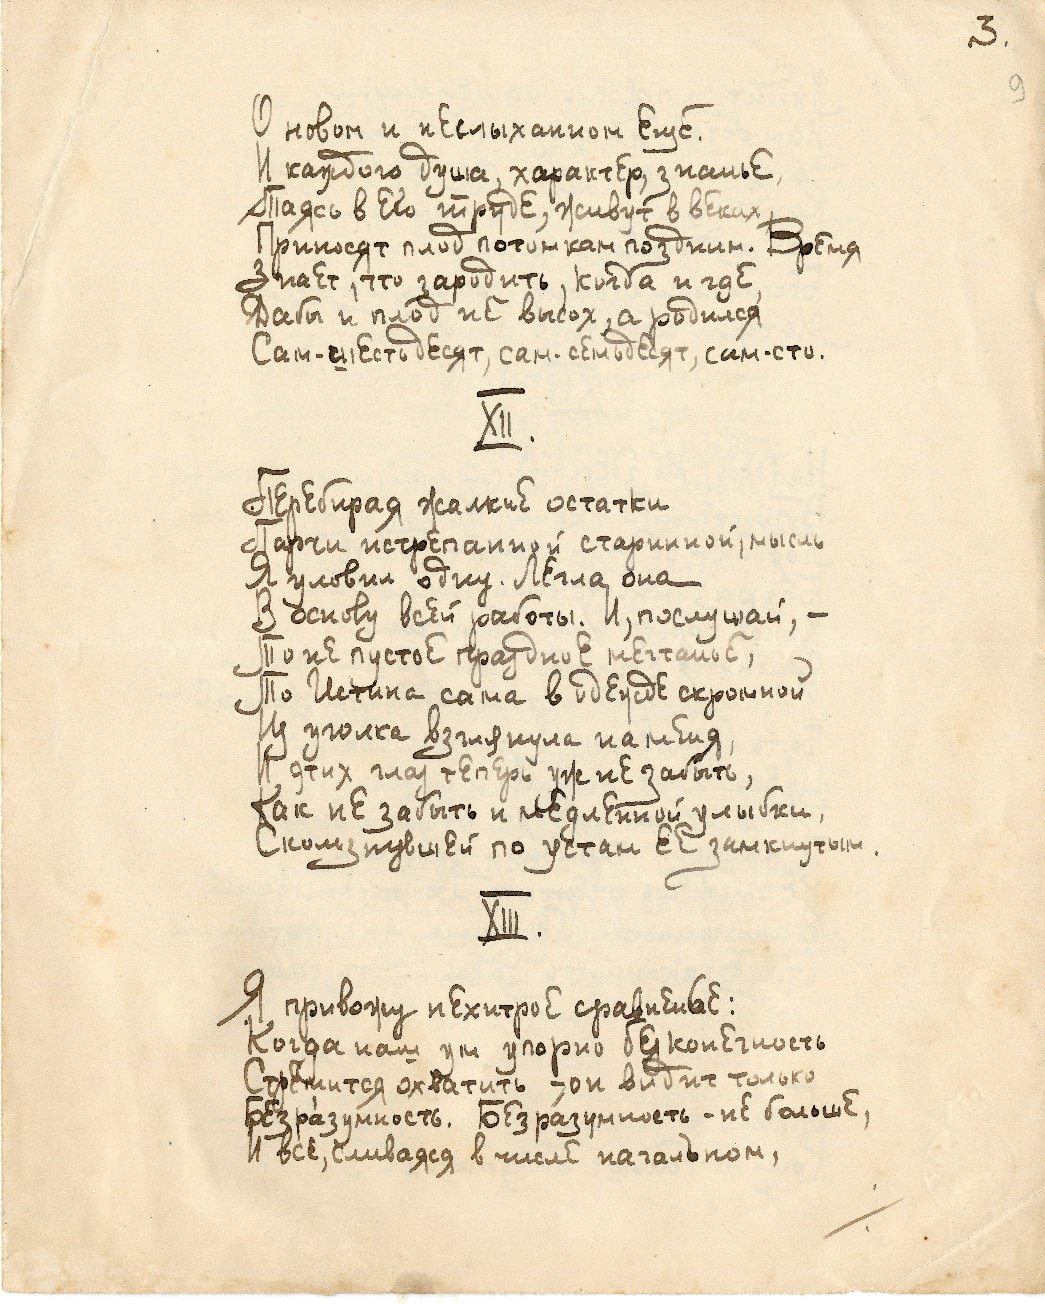 3.
9
О новом и неслыханном еще.
И каждого душа, характер, знанье,
Таясь в его труде, живут в веках,
Приносят плод потомкам поздним. Время
Знает, что зародить, когда и где,
Дабы и плод не высох, а родился
Сам-шестьдесят, сам-семьдесят, сам-сто.
XII.
Перебирая жалкие остатки
Парчи истрепанной старинной, мысль
Я уловил одну. Легла она
В основу всей работы. И, послушай, –
То не пустое праздное мечтанье,
То Истина сама в одежде скромной
Из уголка взглянула на меня,
И этих глаз теперь уж не забыть,
Как не забыть и медленной улыбки,
Скользнувшей по устам ее замкнутым.
XIII.
Я привожу нехитрое сравненье:
Когда наш ум упорно бесконечность
Стремится охватить – он видит только
Безразумность. Безразумность – не больше,
И все, сливаяся в числе начальном,